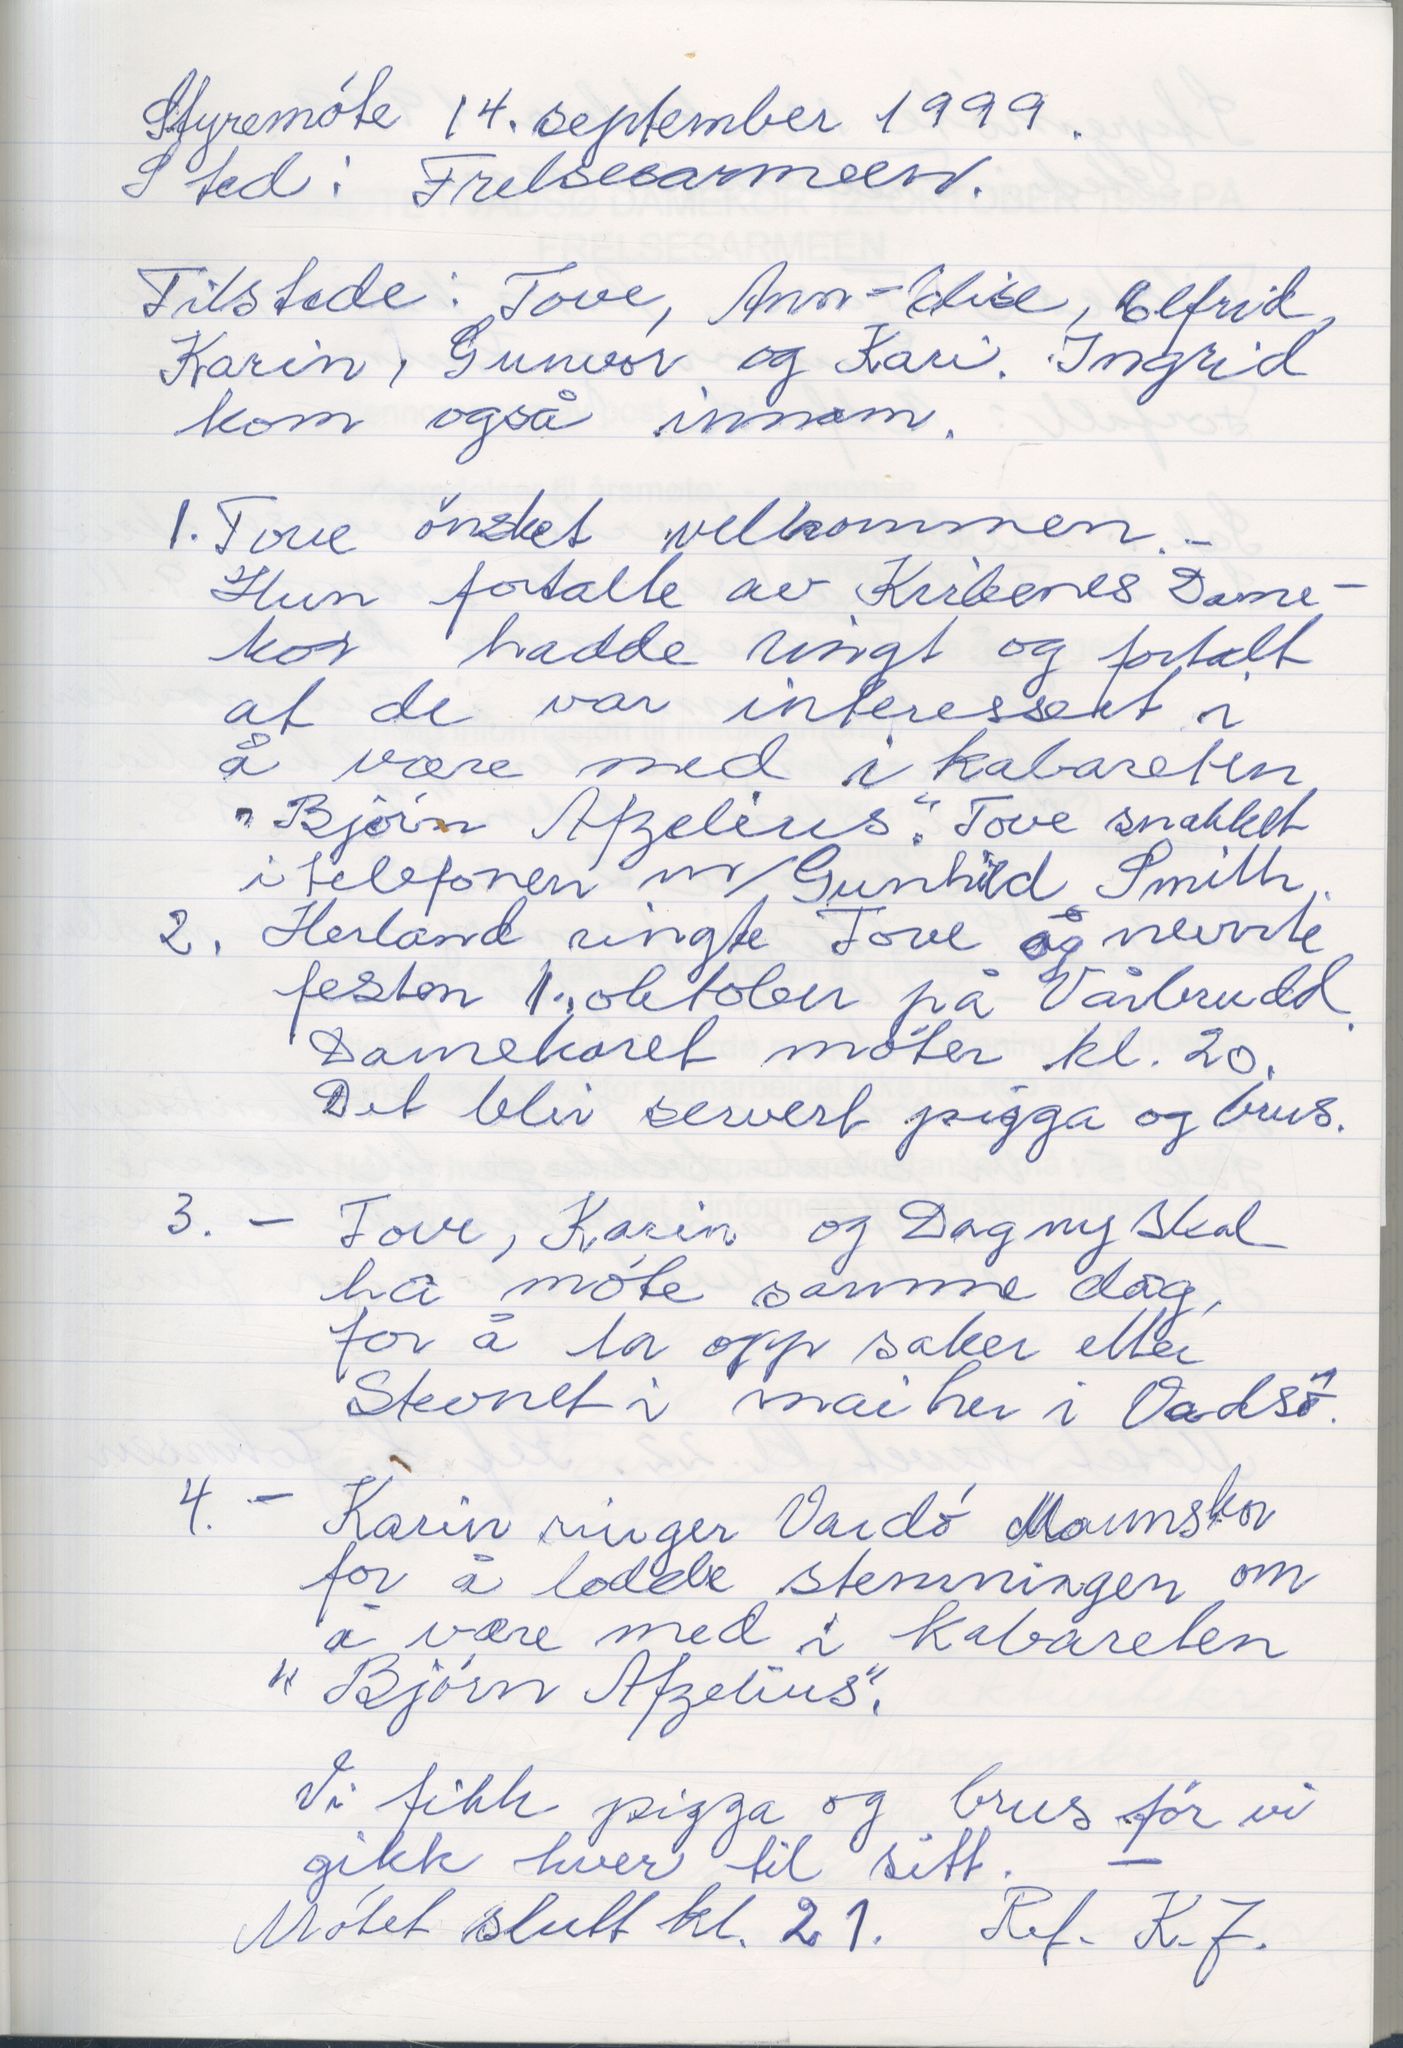 Styremóte 14. september 1999.
Sted: Frelsesarmeen.
Tilstede: Tove, Ann-Elise, Elfrid,
Karin, Gunvor og Kari. Ingrid
kom også innom.
1. Tove ónsket velkommen. –
Hun fortalte av Kirkenes Dame-
kor hadde ringt og fortalt
at de var interessert i
å være med i kabareten
"Bjórn Afzelius". Tove snakket
i telefonen m/Gunhild Smith.
2. Herland ringte Tove og nevnte
festen 1. oktober på Vårbrudd.
Damekoret móter kl. 20.
Det blir servert pizza og brus.
3. – Tove, Karin og Dagny skal
ha móte samme dag,
for å ta opp saker etter
Stevnet i mai her i Vadsö.
4. – Karin ringer Vardó Mannskor
for å lodde stemningen om
å være med i kabareten
"Bjórn Afzelius".
Vi fikk pizza og brus fór vi
gikk hver til sitt. –
Mótet slutt kl. 21. Ref. K.J.